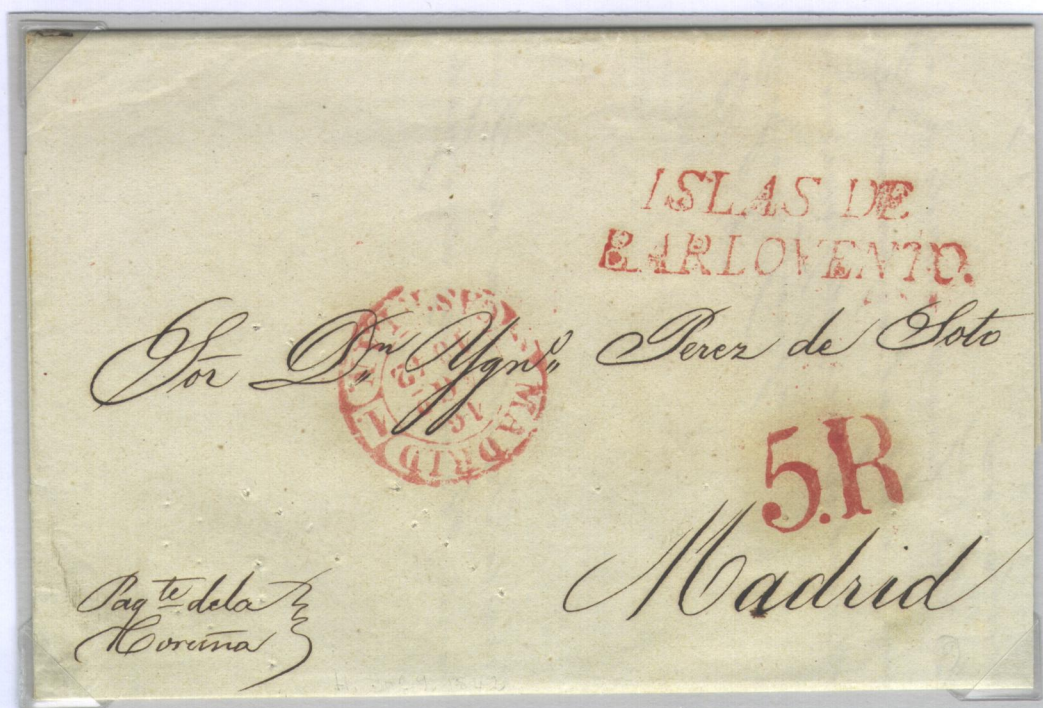 ISLAS DE
BARLOVENTO.
Sor Dn Ygno Perez de Soto
MADRID
5.R
Madrid
Paqte de la
Coruña